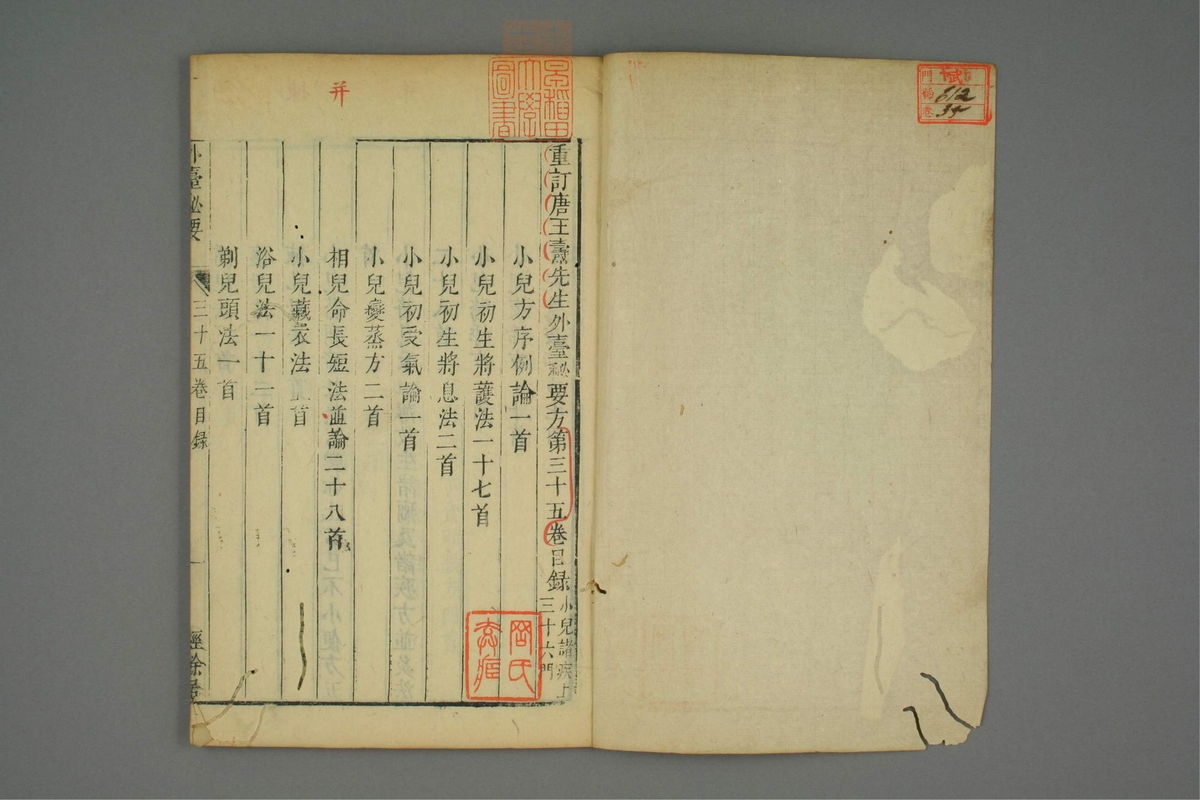 重訂唐王燾先生外臺秘要方第三十五卷目録
小兒諸疾上
三十六門
小兒方序例論一首
小兒初生將護法一十七首
小兒初生將息法二首
小兒初受氣論一首
小兒變蒸方二首
相兒命長短法並論二十八首
小兒藏衣法首
浴兒法一十一首
剃兒頭法一首
外臺秘要
三十五卷目録
一
經餘居
并
早稲田大學圖書
門
卷
612
35